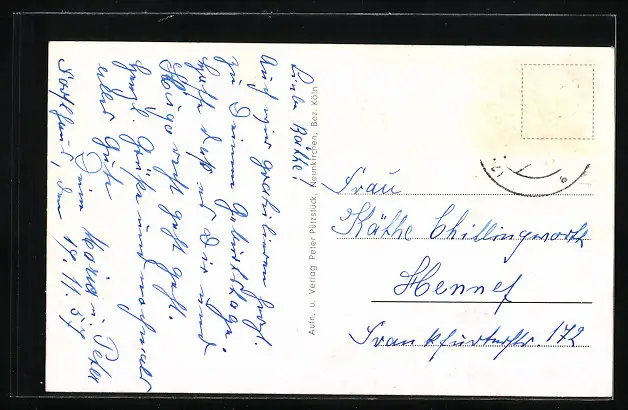 Liebe Käthe!
Auch wir gratulieren herzl.
zu Deinem Geburtstage.
Hoffe daß es Dir und
Hugo recht gut geht.
Herzl. Grüße und nochmals
alles Gute
Deine Maria u. Peter
den 19.11.57
Aufn. u. Verlag Peter Pützstück, Neunkirchen, Bez. Köln
Frau
Käthe Chillingworth
Hennef
Frankfurterstr. 172